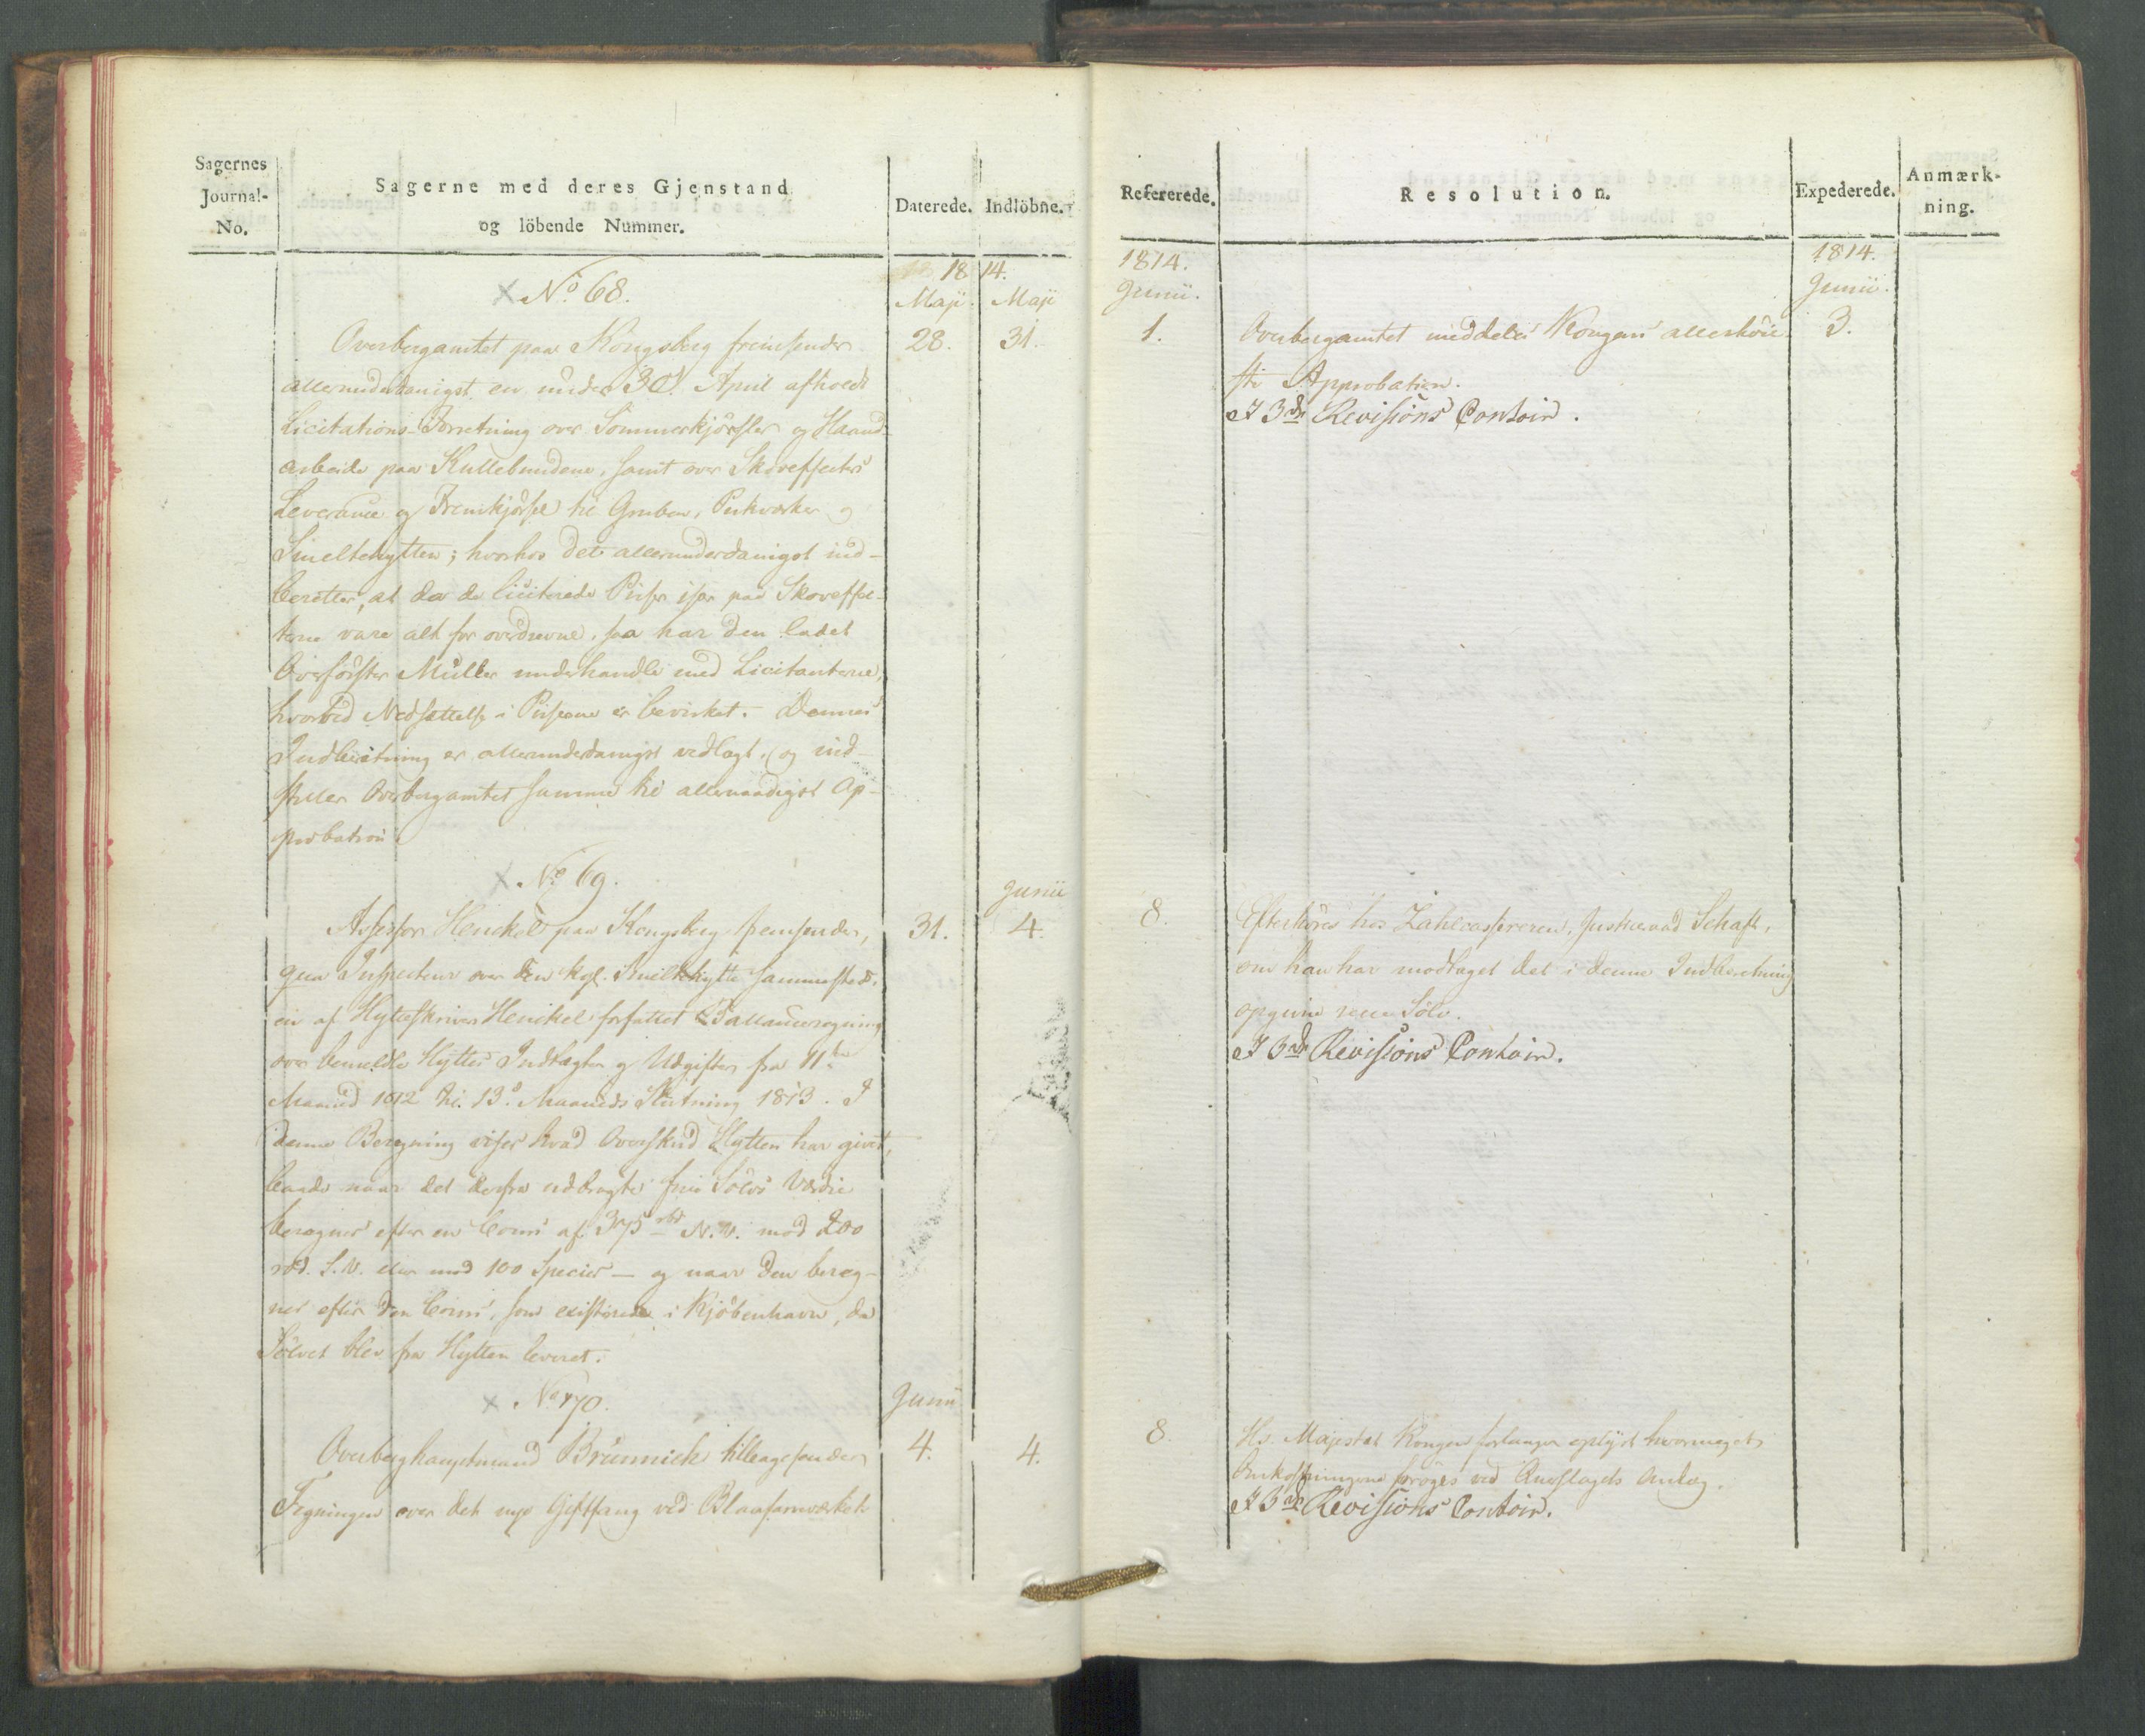 Sagernes
Journal-
No.
Sagerne med deres Gjenstand
og löbende Nummer.
Daterede.
Indlöbne.
1814.
Maji
Maji
× No. 68.
Overbergamtet paa Kongsberg fremsender
28.
31.
allerunderdanigst en under 30. April afholdt
Licitations-Forretning over Sommerkjörsler og Haand-
arbeide paa Kullebundene, samt over Skoveffecters
Leverance og Fremkjörsel til Gruben, Puckværker og
Smeltehytten; hvorhos det allerunderdanigst ind-
beretter, at da de liciterede Priser især paa Skoveffec-
terne vare alt for overdrevne, saa har den ladet
Overförster Müller underhandle med Licitanterne,
hvorved Nedsættelse i Priserne er bevirket. Dennes
Indberetning er allerunderdanigst vedlagt, og ind-
stiller Overbergamtet samme til allernaadigst Ap-
probation.
× No. 69.
Junii
Assessor Henckel paa Kongsberg fremsender,
31.
4.
qua Inspecteur over den kgl. Smeltehytte sammesteds,
en af Hytteskriver Henckel forfattet Ballanceregning
over bemeldte Hyttes Indtægter og Udgifter fra 11te
Maaned 1812 til 13. Maaneds Slutning 1813. I
denne Beregning viser hvad Overskud Hytten har givet,
baade naar det derfra udbragte fine Sölvs Værdie
beregnes efter en Cours af 375 rbd N.V. mod 200
rbd. S.V. eller mod 100 Species — og naar den bereg-
nes efter den Cours, som existerede i Kjöbenhavn, da
Sölvet blev fra Hytten leveret.
× No. 70.
Junii
Overberghauptmand Brünnich tilbagesender
4.
4.
Tegningen over det nye Giftfang ved Blaafarveværket
Refererede.
Resolution.
Expederede.
Anmærk-
ning.
1814.
1814.
Junii.
Junii.
1.
Overbergamtet meddeles Kongens allerhöie-
3.
ste Approbation.
I 3de Revisions Contoir.
8.
Efterhöres hos Zahlcassereren, Justitsraad Schaft,
om han har modtaget det i denne Indberetning
opgivne Sölv.
I 3de Revisions Contoir.
8.
Hs. Majestæt Kongen forlanger oplyst hvormeget
Omkostningerne foröges ved Anlæg.
I 3de Revisions Contoir.